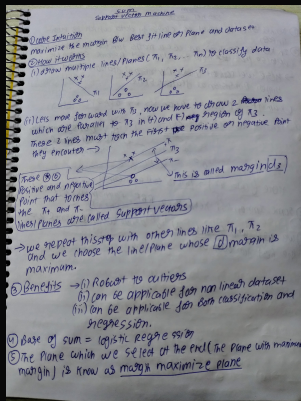 SVM
Support Vector Machine
① Core Intuition
maximize the margin B/w Best fit line or Plane and dataset
② How it works
(i) draw multiple lines/Planes (π1, π2, ... πn) to classify data
π1 π2 π3
(ii) Lets move forward with π3 now we have to draw 2 lines
which are Parallel to π3 in (+) and (-) region of π3.
These 2 lines must toch the First Positive or negative point
they encounter →
These
Positive and negative
Point that touches
the π+ and π-
lines/planes are called support vectors
This is called margin d3
→ we repeat this step with other lines line π1, π2
and we choose the line/plane whose d margin is
maximum.
③ Benefits → (i) Robust to outliers
(ii) can be applicable for non linear dataset
(iii) can be applicable for Both classification and
regression.
④ Base of svm = logistic regression
⑤ The Plane which we select at the end (The Plane with maximum
margin) is know as margin maximize plane